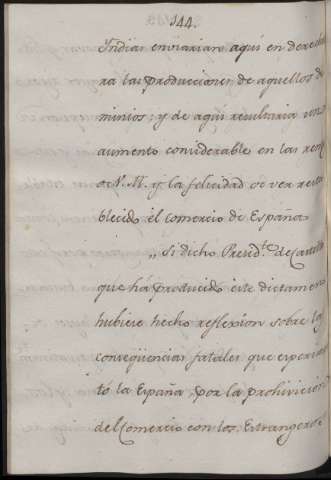 144.
Indias enviarian aqui en derechu
ra las producciones de aquellos do
minios; y de aqui resultaria un
aumento considerable en las rent
de V. M. y la felicidad de ver resta
blecido el comercio de España.
„ Si dicho Presid.te de Castilla
que ha producido este dictamen
hubiese hecho reflexion sobre las
conseqüencias fatales que experimen
tó la España por la prohivicion
del Comercio con los Estrangeros